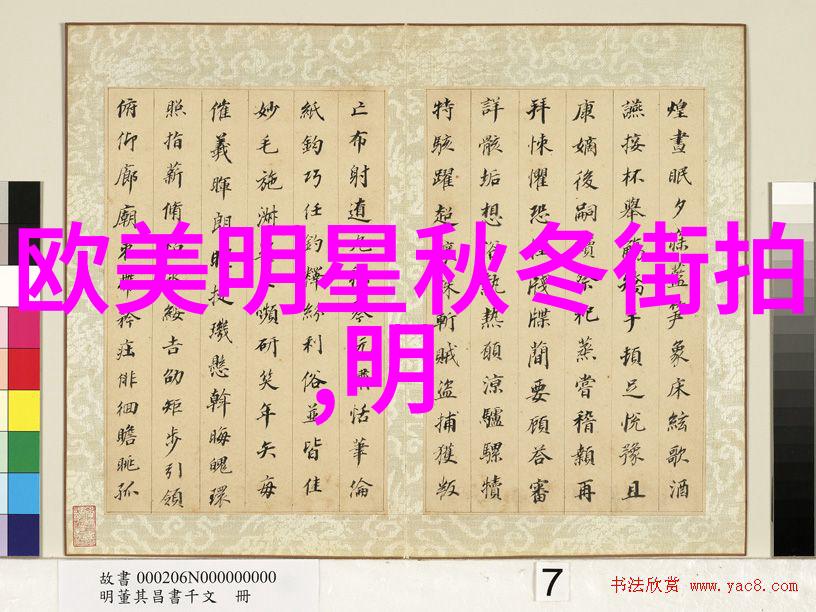 欧美明星秋冬街拍
,明
煌晝眠夕寐藍笋象床絃歌酒
讌接杯舉觴矯手頓足悅豫且
康嫡後嗣續祭祀蒸嘗稽顙再
拜悚懼恐惶牋牒簡要顧荅審
詳骸垢想浴執熱願涼驢騾犢
特駭躍超驤誅斬賊盜捕獲叛
亡布射遼丸嵇琴阮嘯恬筆倫
紙鈞巧任釣釋紛利俗並皆佳
妙毛施淑姿工嚬妍笑年矢每
催羲暉朗曜璇璣懸斡晦魄環
照指薪脩祜永綏吉劭矩步引領
俯仰廊廟束帶矜莊徘徊瞻眺孤
故書 000206N000000000
明董其昌書千文 冊
7
书法欣赏 www.yac8.com